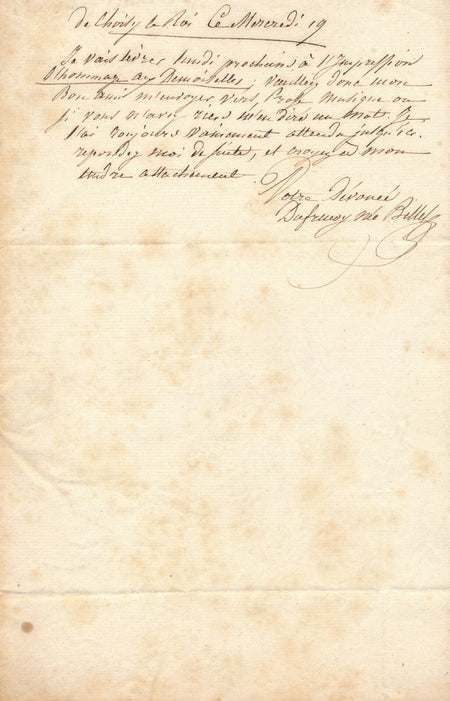 de Choisy le Roi Ce Mercredi 19
Je vais livrer lundi prochains à l'Impression
l'hommage aux Demoiselles; veuillez donc mon
Bon ami m'envoyer, vers, Prose musique ou
si vous n'avez rien m'en dire un mot. Je
l'ai toujours vainement attendu jusqu'ici.
repondez moi de suite, et croyez à mon
tendre attachement
Votre Dévouée
Dufrenoy née Billet